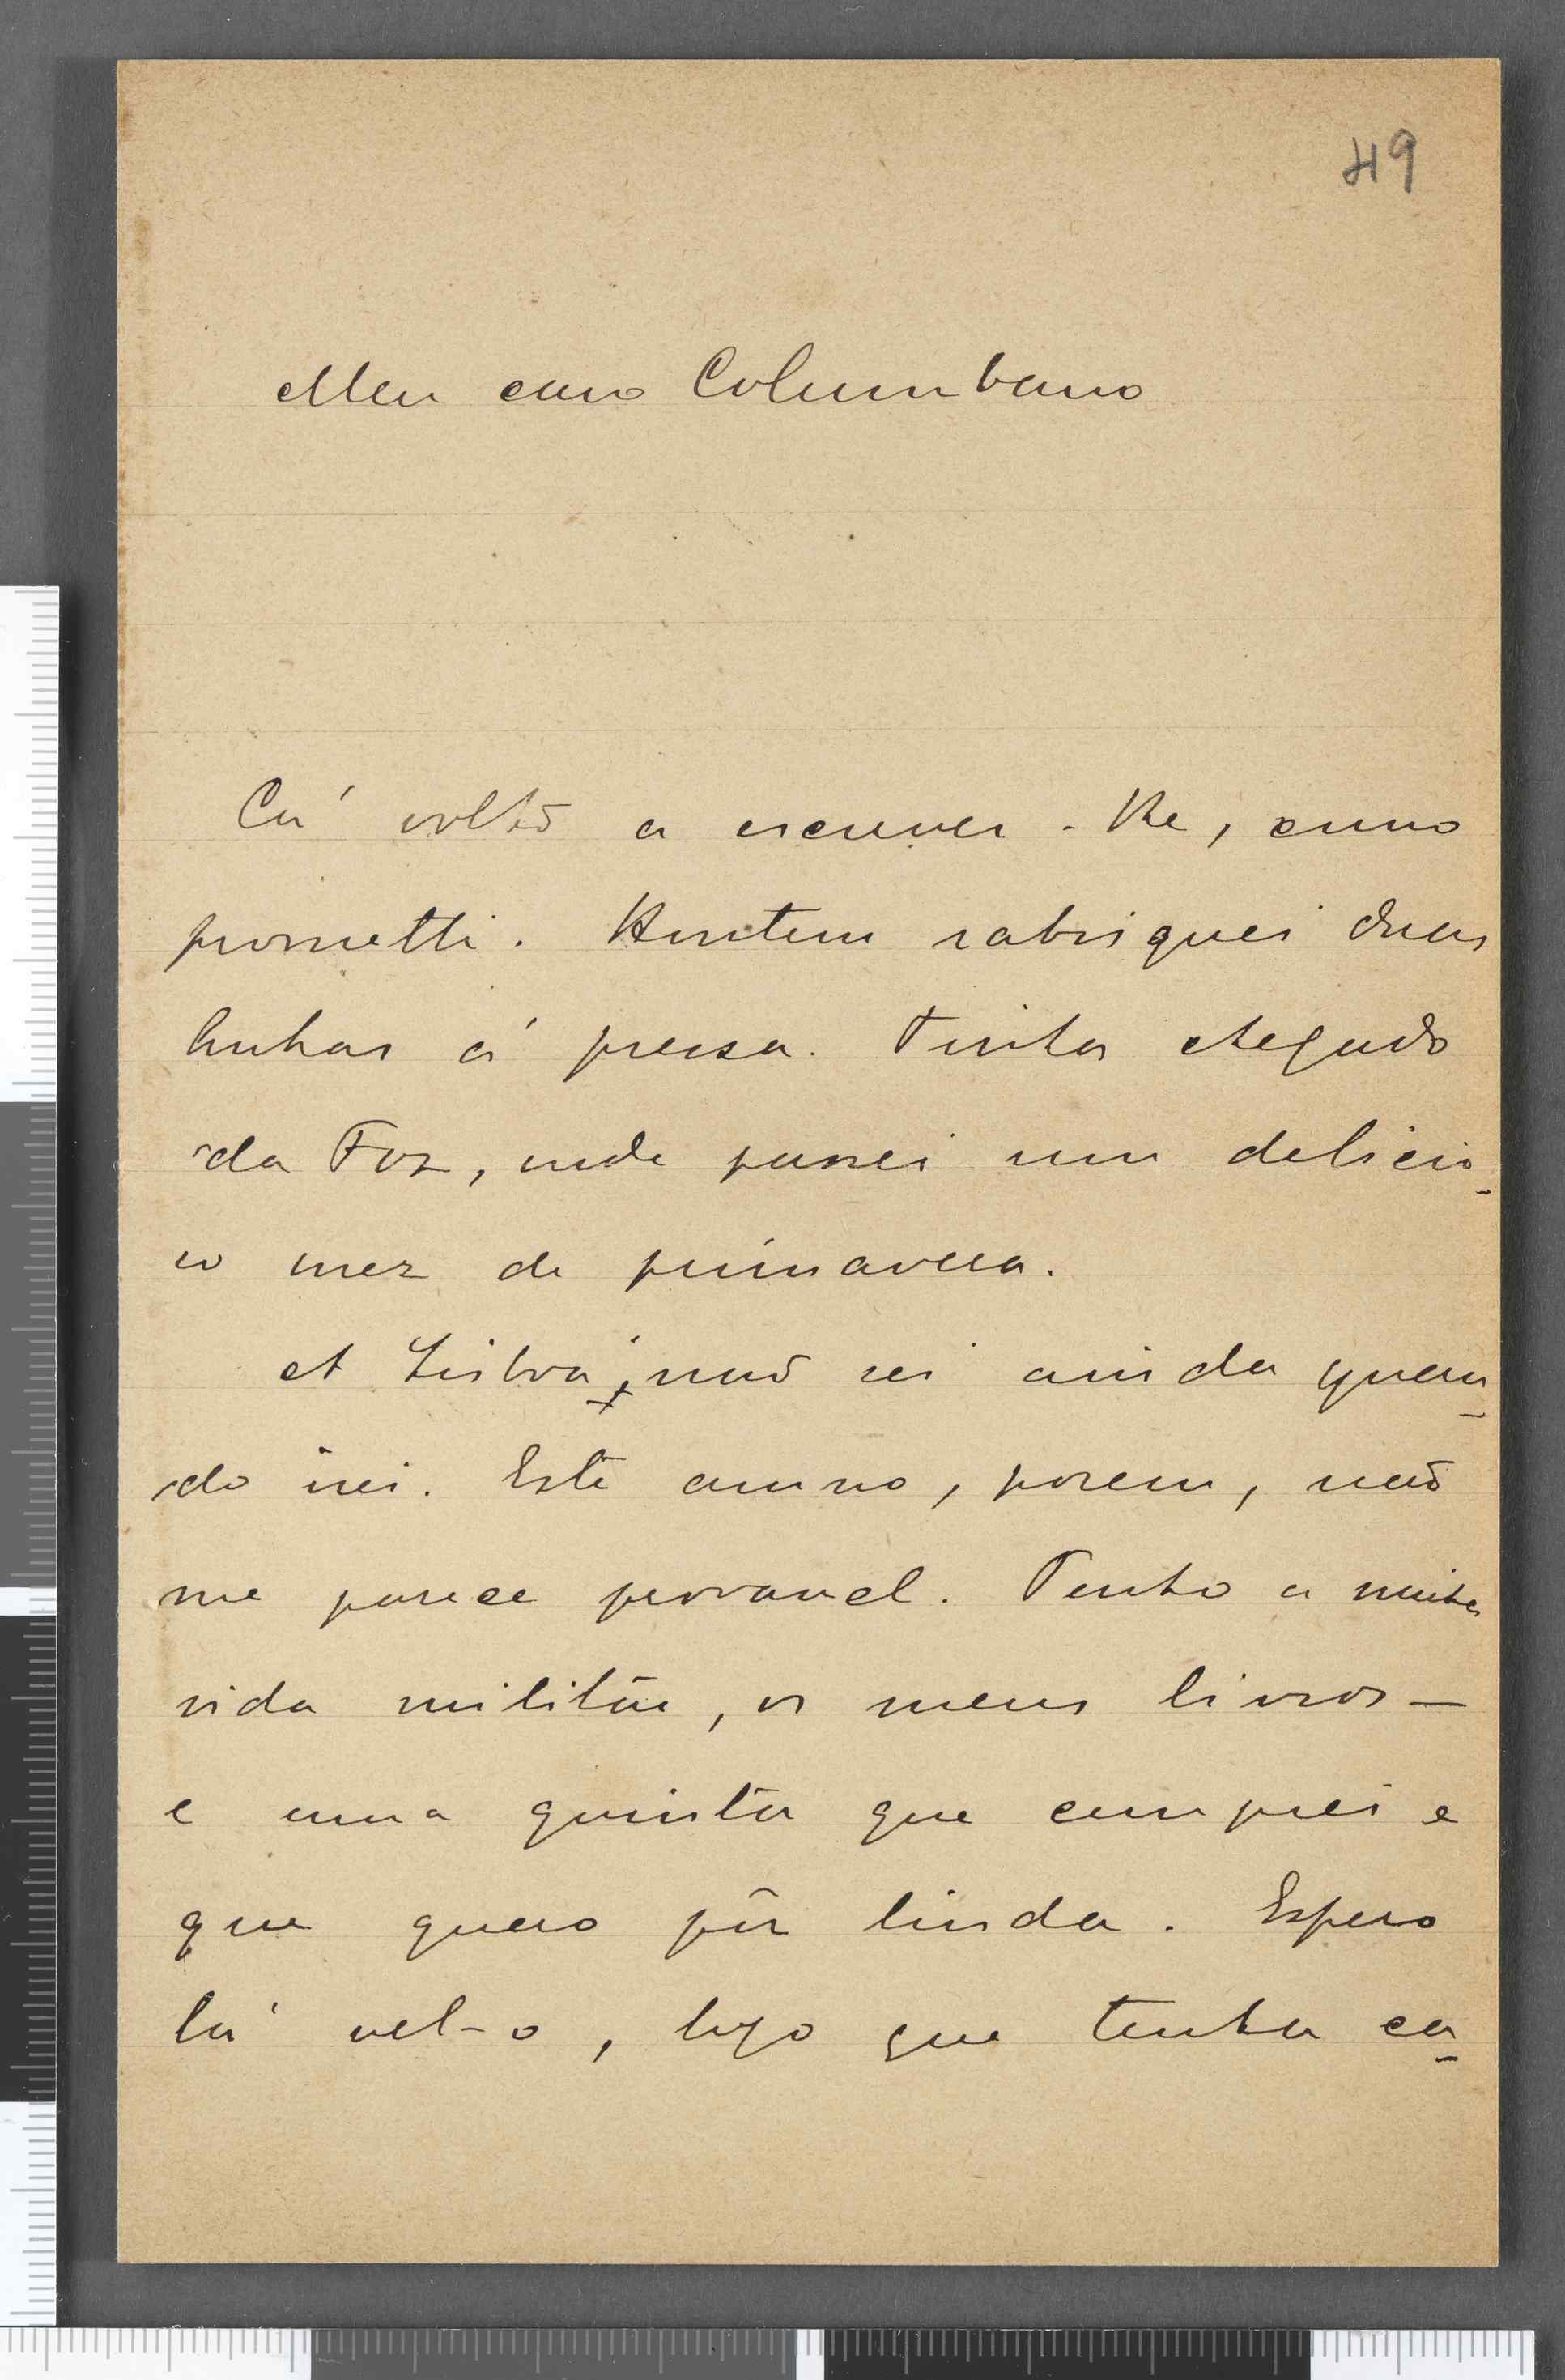 49
Meu caro Columbano
Cá volto a escrever-lhe, como
prometti. Hontem rabisquei duas
linhas á pressa. Tinha chegado
da Foz, onde passei um delicio-
so mez de primavera.
A Lisboa, não sei ainda quan-
do irei. Este anno, porem, não
me parece provavel. Tenho a minha
vida militar, os meus livros —
e uma quinta que comprei e
que quero pôr linda. Espero
lá vel-o, logo que tenha ca-